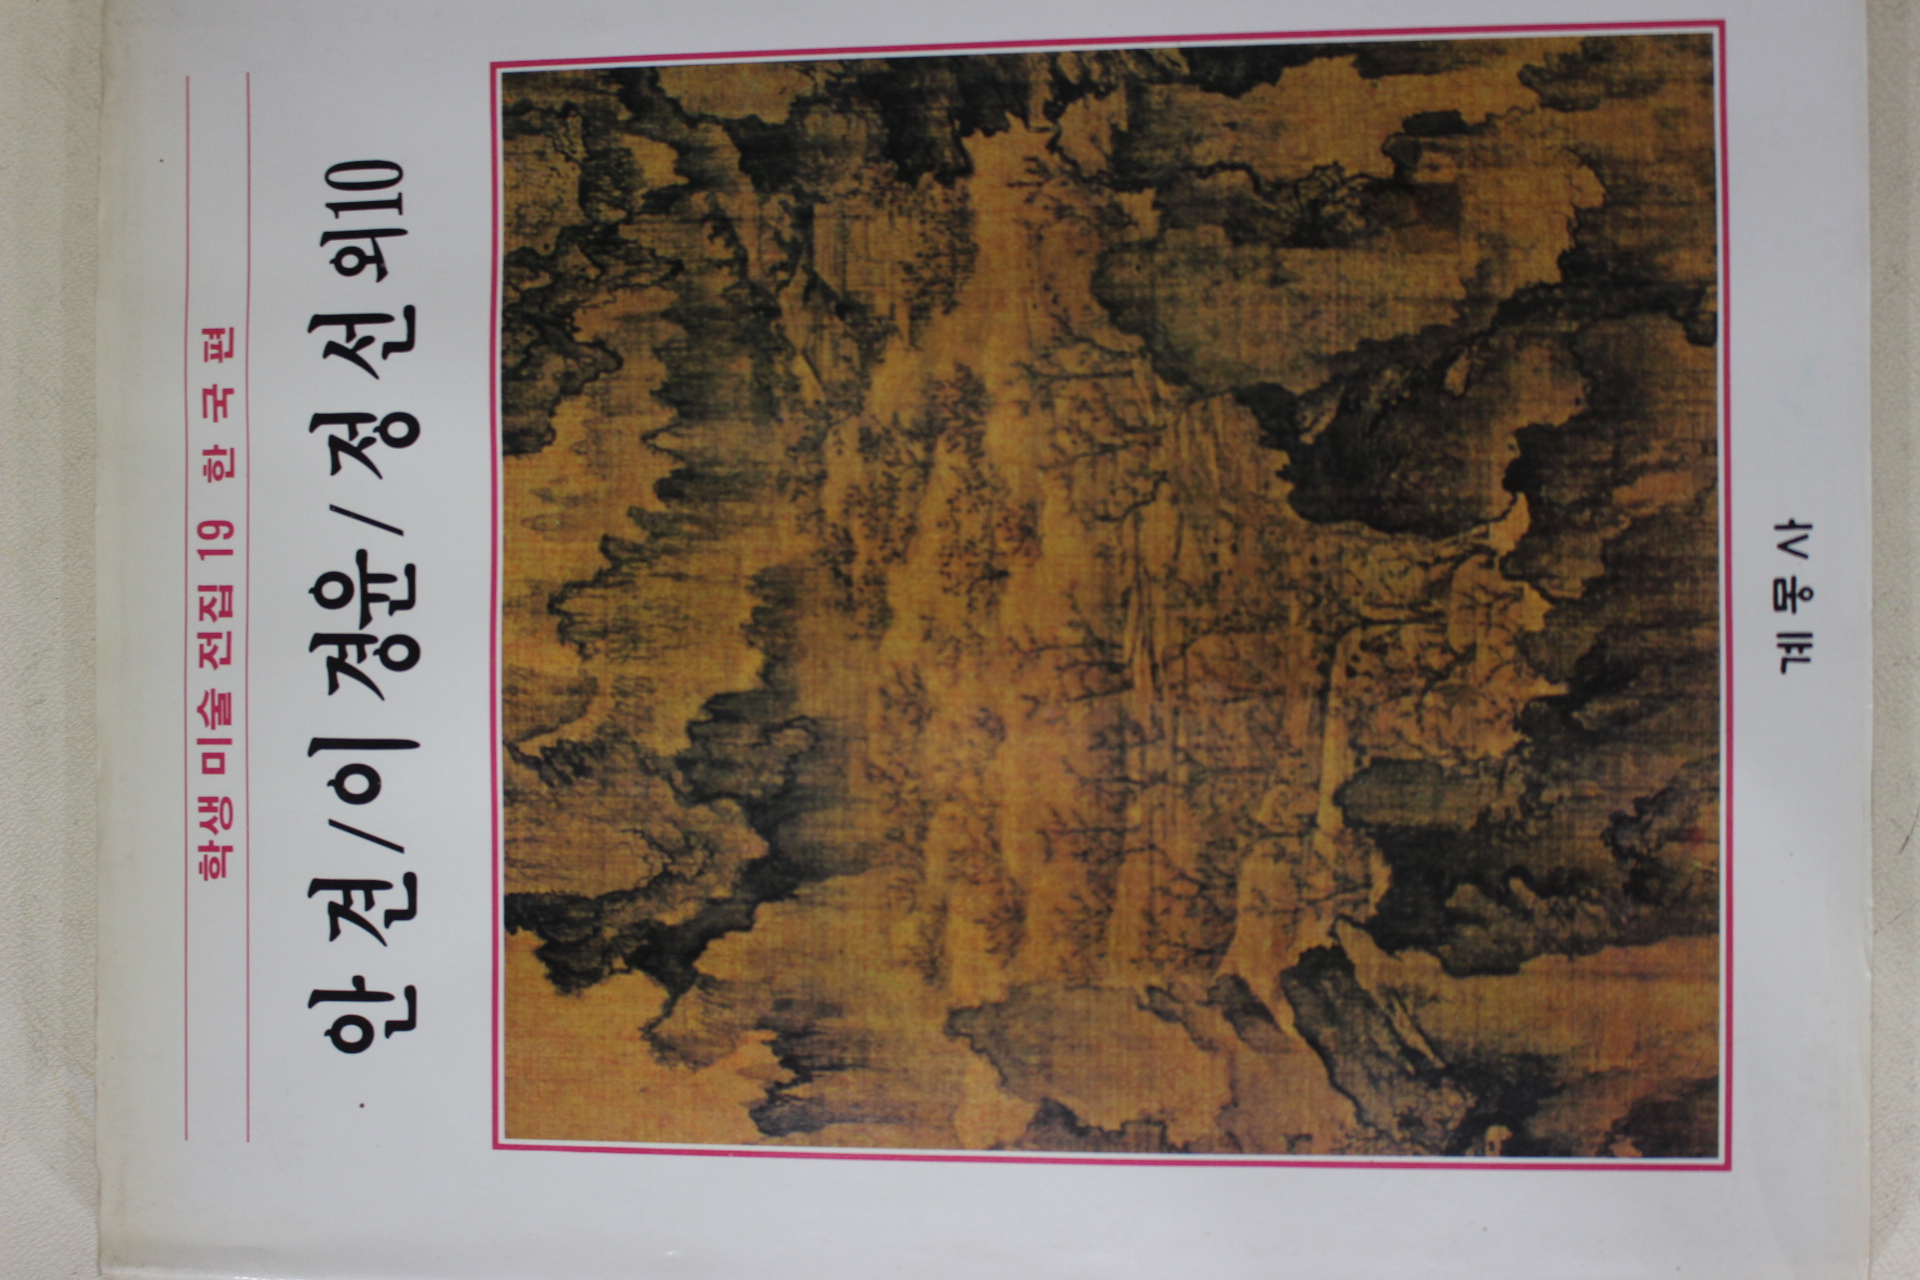 학생 미술 전집 19 한국편
안견/이경윤/정선 외10
계몽사